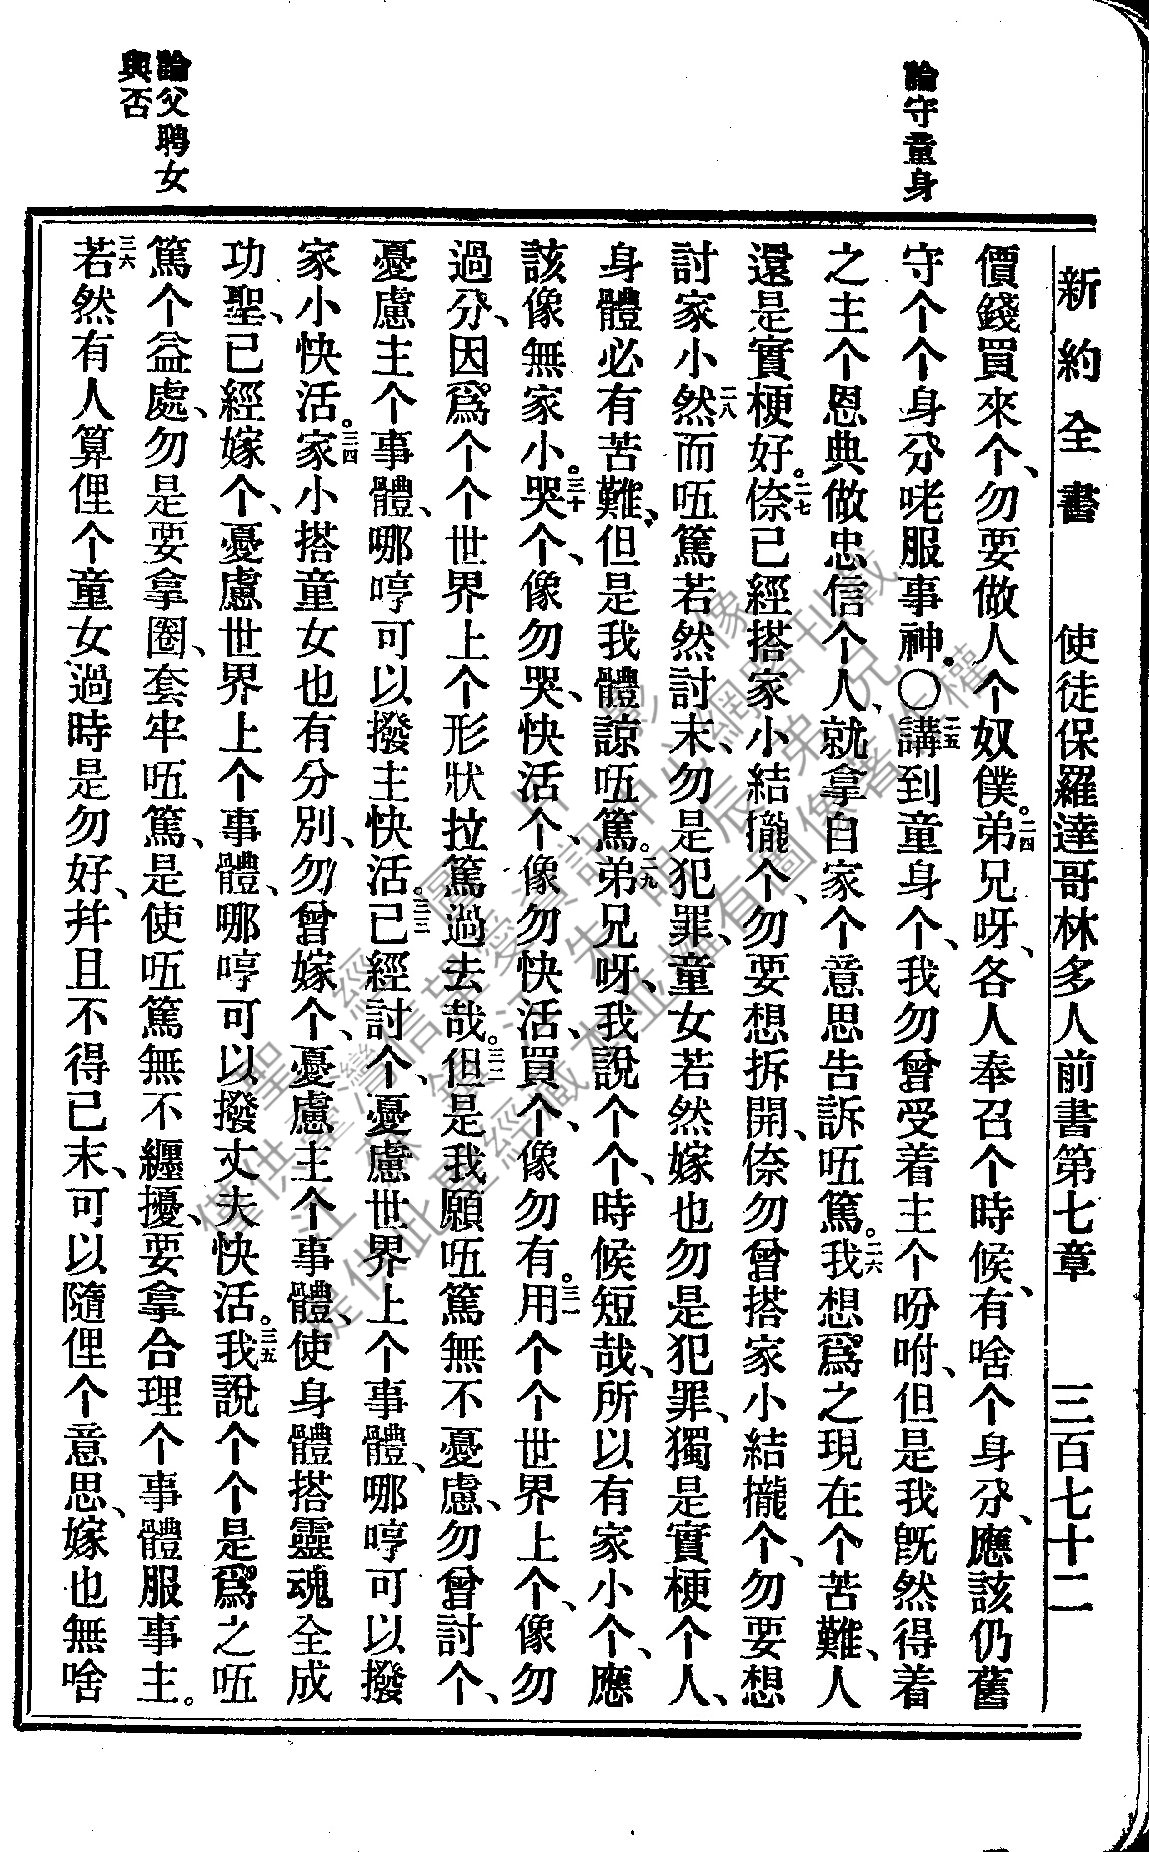 論守童身
論父聘女
與否
新約全書　使徒保羅達哥林多人前書第七章　三百七十二
價錢買來个、勿要做人个奴僕。二四弟兄呀、各人奉召个時候、有啥个身分、應該仍舊
守个个身分咾服事神。〇二五講到童身个、我勿曾受着主个吩咐、但是我旣然得着
之主个恩典做忠信个人、就拿自家个意思告訴㕶篤。二六我想爲之現在个苦難、人
還是實梗好。二七倷已經搭家小結攏个、勿要想拆開、倷勿曾搭家小結攏个、勿要想
討家小二八然而㕶篤若然討末、勿是犯罪、童女若然嫁也勿是犯罪、獨是實梗个人、
身體必有苦難、但是我體諒㕶篤。二九弟兄呀、我說个个、時候短哉、所以有家小个、應
該像無家小。三十哭个、像勿哭、快活个、像勿快活、買个、像勿有。三一用个个世界上个、像勿
過分、因爲个个世界上个形狀拉篤過去哉。三二但是我願㕶篤無不憂慮、勿曾討个、
憂慮主个事體、哪哼可以撥主快活。三三已經討个、憂慮世界上个事體、哪哼可以撥
家小快活。三四家小搭童女也有分別、勿曾嫁个、憂慮主个事體、使身體搭靈魂全成
功聖、已經嫁个、憂慮世界上个事體、哪哼可以撥丈夫快活。三五我說个个是爲之㕶
篤个益處、勿是要拿圈套牢㕶篤、是使㕶篤無不纏擾、要拿合理个事體服事主。
三六若然有人算俚个童女過時是勿好、幷且不得已末、可以隨俚个意思、嫁也無啥